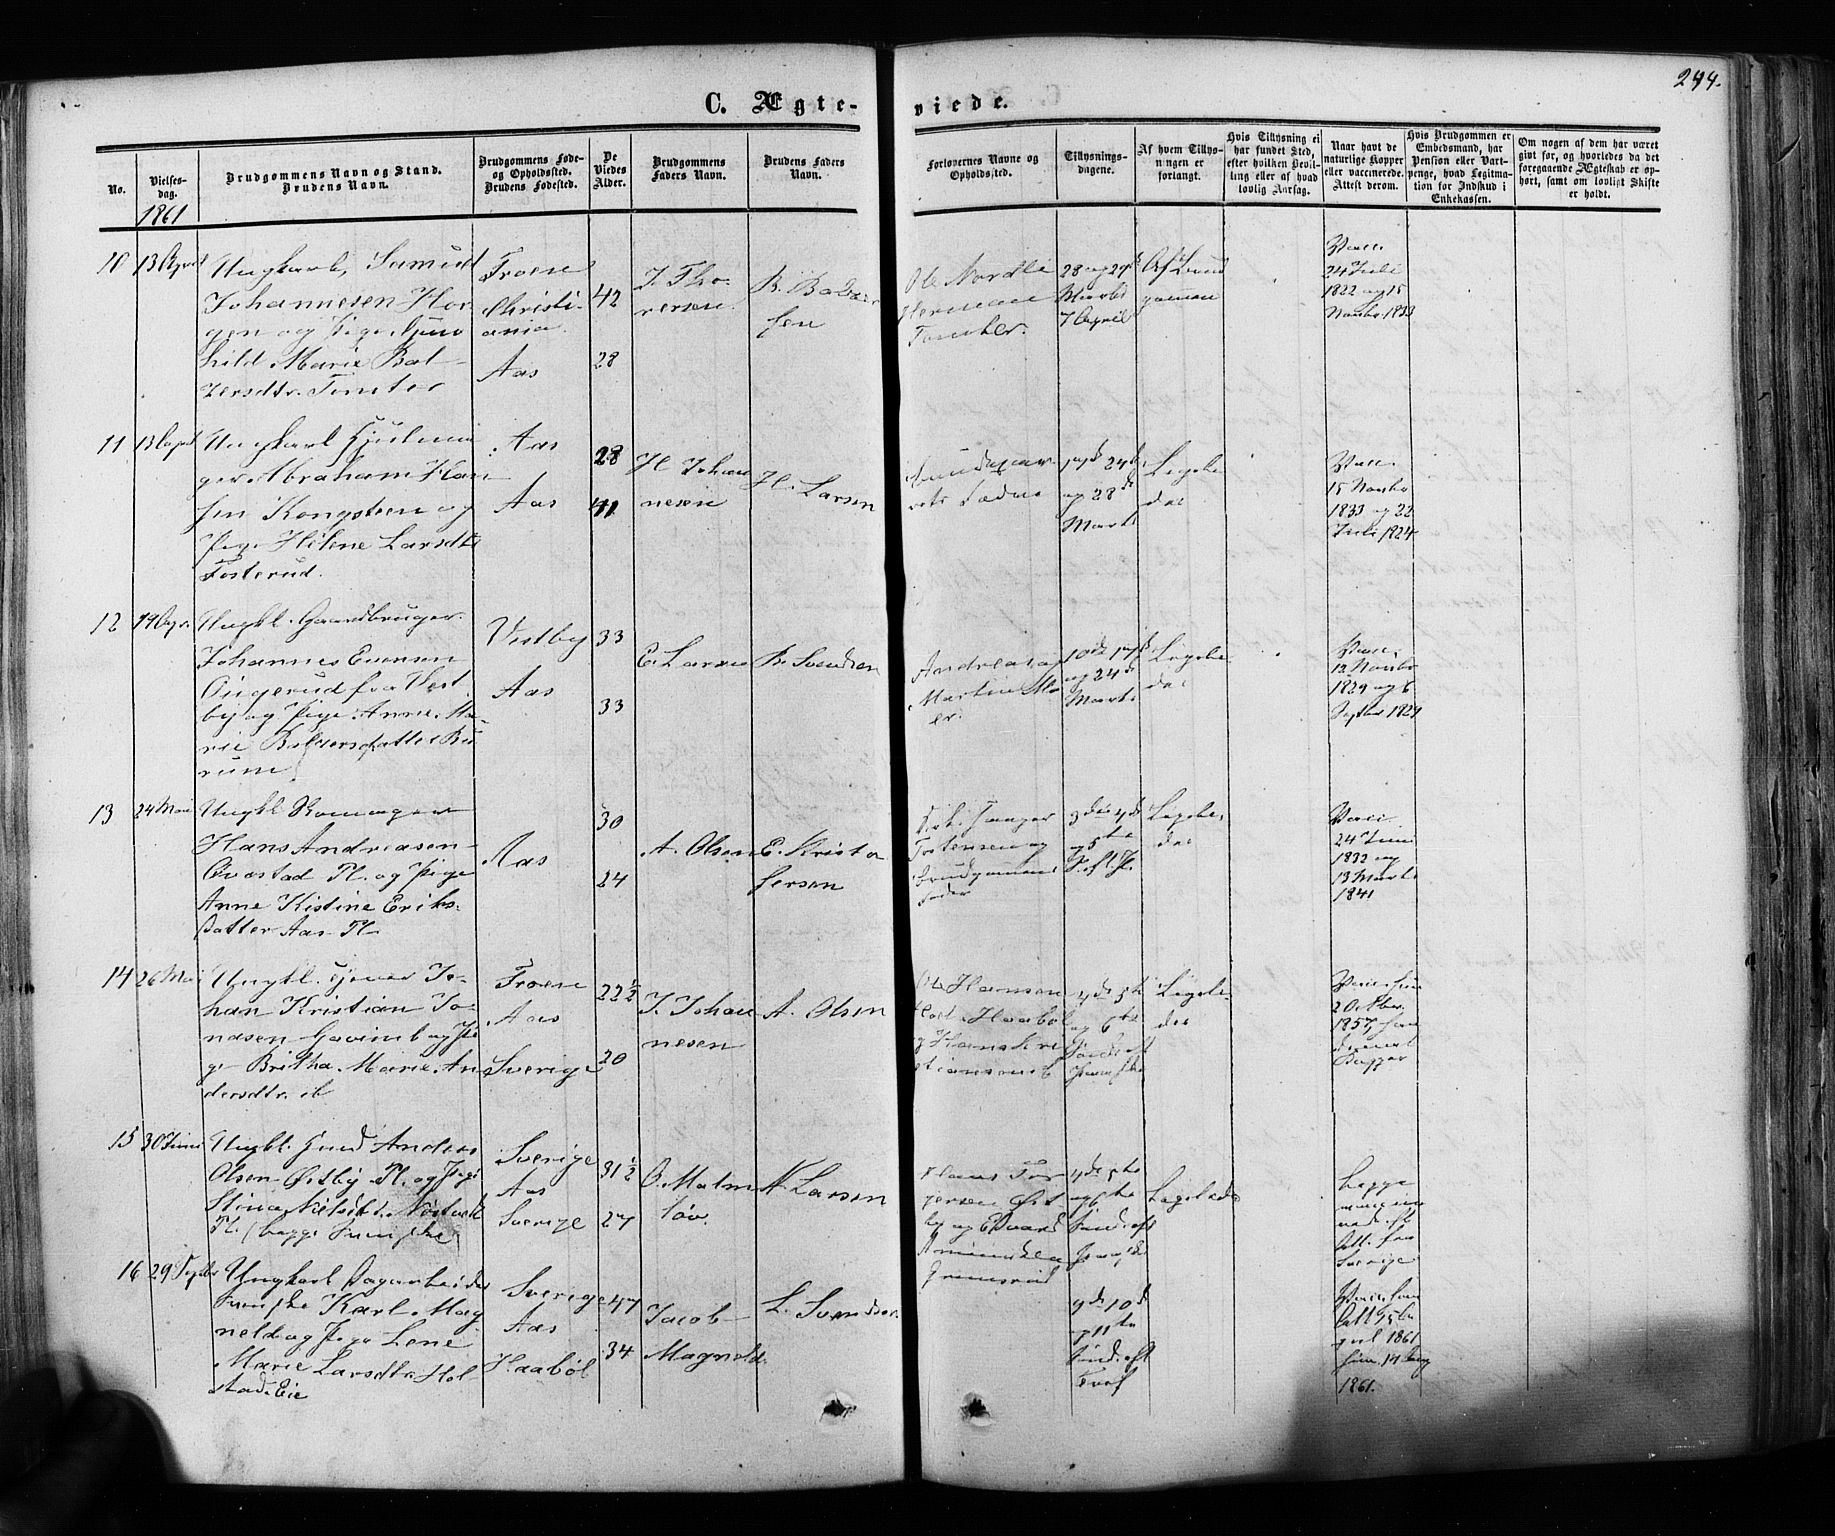 244.
C. Ægte-
viede.
No.
Vielses-
dag.
Brudgommens Navn og Stand.
Brudens Navn.
Brudgommens Føde-
og Opholdssted.
Brudens Fødested.
De
Viedes
Alder.
Brudgommens
Faders Navn.
Brudens Faders
Navn.
Forlovernes Navne og
Opholdssted.
Tillysnings-
dagene.
Af hvem Tillys-
ningen er
forlangt.
Hvis Tillysning ei
har fundet Sted,
efter hvilken Bevil-
ling eller af hvad
lovlig Aarsag.
Naar havt de
naturlige Kopper
eller vaccinerede.
Attest derom.
Hvis Brudgommen er
Embedsmand, har
Pension eller Vart-
penge, hvad Legitma-
tion for Indskud i
Enkekassen.
Om nogen af dem har været
givt før, og hvorledes da det
foregaaende Ægteskab er op-
hørt, samt om lovligt Skifte
er holdt.
1861
10
13 April
Ungkarl, Samuel
Johannesen Hor-
gen og Pige Gun
hild Marie Bal-
zersdtr. Tomter
Froen
Christi-
ania
Aas
42
28
J. Tho-
rersen
B. Balzer
sen
Ole Nordli
Herman
Tomter.
28 og 29
Marts
7 April
Af Brud
gommen
Vacc.
24 Juli
1822 og 15
Novbr 1833
11
13 April
Ungkarl
Abraham Han
sen Kongsteen og
Pige Helene Larsdtr
Fosterud.
Aas
Aas
28
41
H. Johan
nesen
H. Larsen
17de 24de
og 28de
Marts
Ligele
des
Vacc.
15 Novbr
1833 og 22
Juli 1824
12
19 Apr.
Ungkl. Gaardbruger
Johannes Evensen
Ungerud fra Vest
by og Pige Anne Ma-
rie Balzersdatter Bu
rum
Vestby
Aas
33
33
E. Larsen
B. Svendsen
Andreas og
Martin Mo
er.
10de 17de
og 24de
Marts
Ligele
des
Vacc.
12 Novbr
1829 og 6
Septbr 1829
13
24 Mai
Ungkl.
Hans Andreasen
Qvæstad Pl. og Pige
Anne Kistine Eriks-
datter Aas Pl.
Aas
30
24
A. Olsen
E. Kristo
fersen
Torstensen og
Brudgommens
Fader
3die 4de
og 5te
S. ef. P.
Ligele
des
Vacc.
24 Juni
1832 og
13 Marts
1841
14
26 Mai
Ungkl. Tjener Jo-
han Kristian Jo-
nasen Gavim b og Pi
ge Britha Marie An
dersdtr. ib
Froen
Aas
Sverige
22 1/2
20
J. Johan
nesen
A. Olsen
Ole Hansen
Haabøl
og Hans Kri
stiansen
4de 5te
og 6te
Sønd. eft
Paaske
Ligele-
des
2 October
1857,
15
30 Juni
Ungkl. Anders
Olsen Østby Pl. og Pige
Stina Nilsdtr. Nøstvedt
Pl. (begge Svenske)
Sverige
Aas
Sverige
31 1/2
27
O. Malm
løv.
N. Larsen
Hans Tor
gersen Øst
by og Edvard
Amundsen
4de 5te
og 6te
Sønd. eft
Ligeledes
begge
Att. fra
Sverige
16
29 Septbr
Ungkarl Dagarbeider
Svenske Karl Mag
neld og Pige Lene
Marie Larsdtr. Hol
stad Eie
Sverige
Aas
Haabøl
47
34
Jacob
Magneld.
L. Svendsen
9de 10de
og 11te
Sønd. eft
Tref
1861
1861.